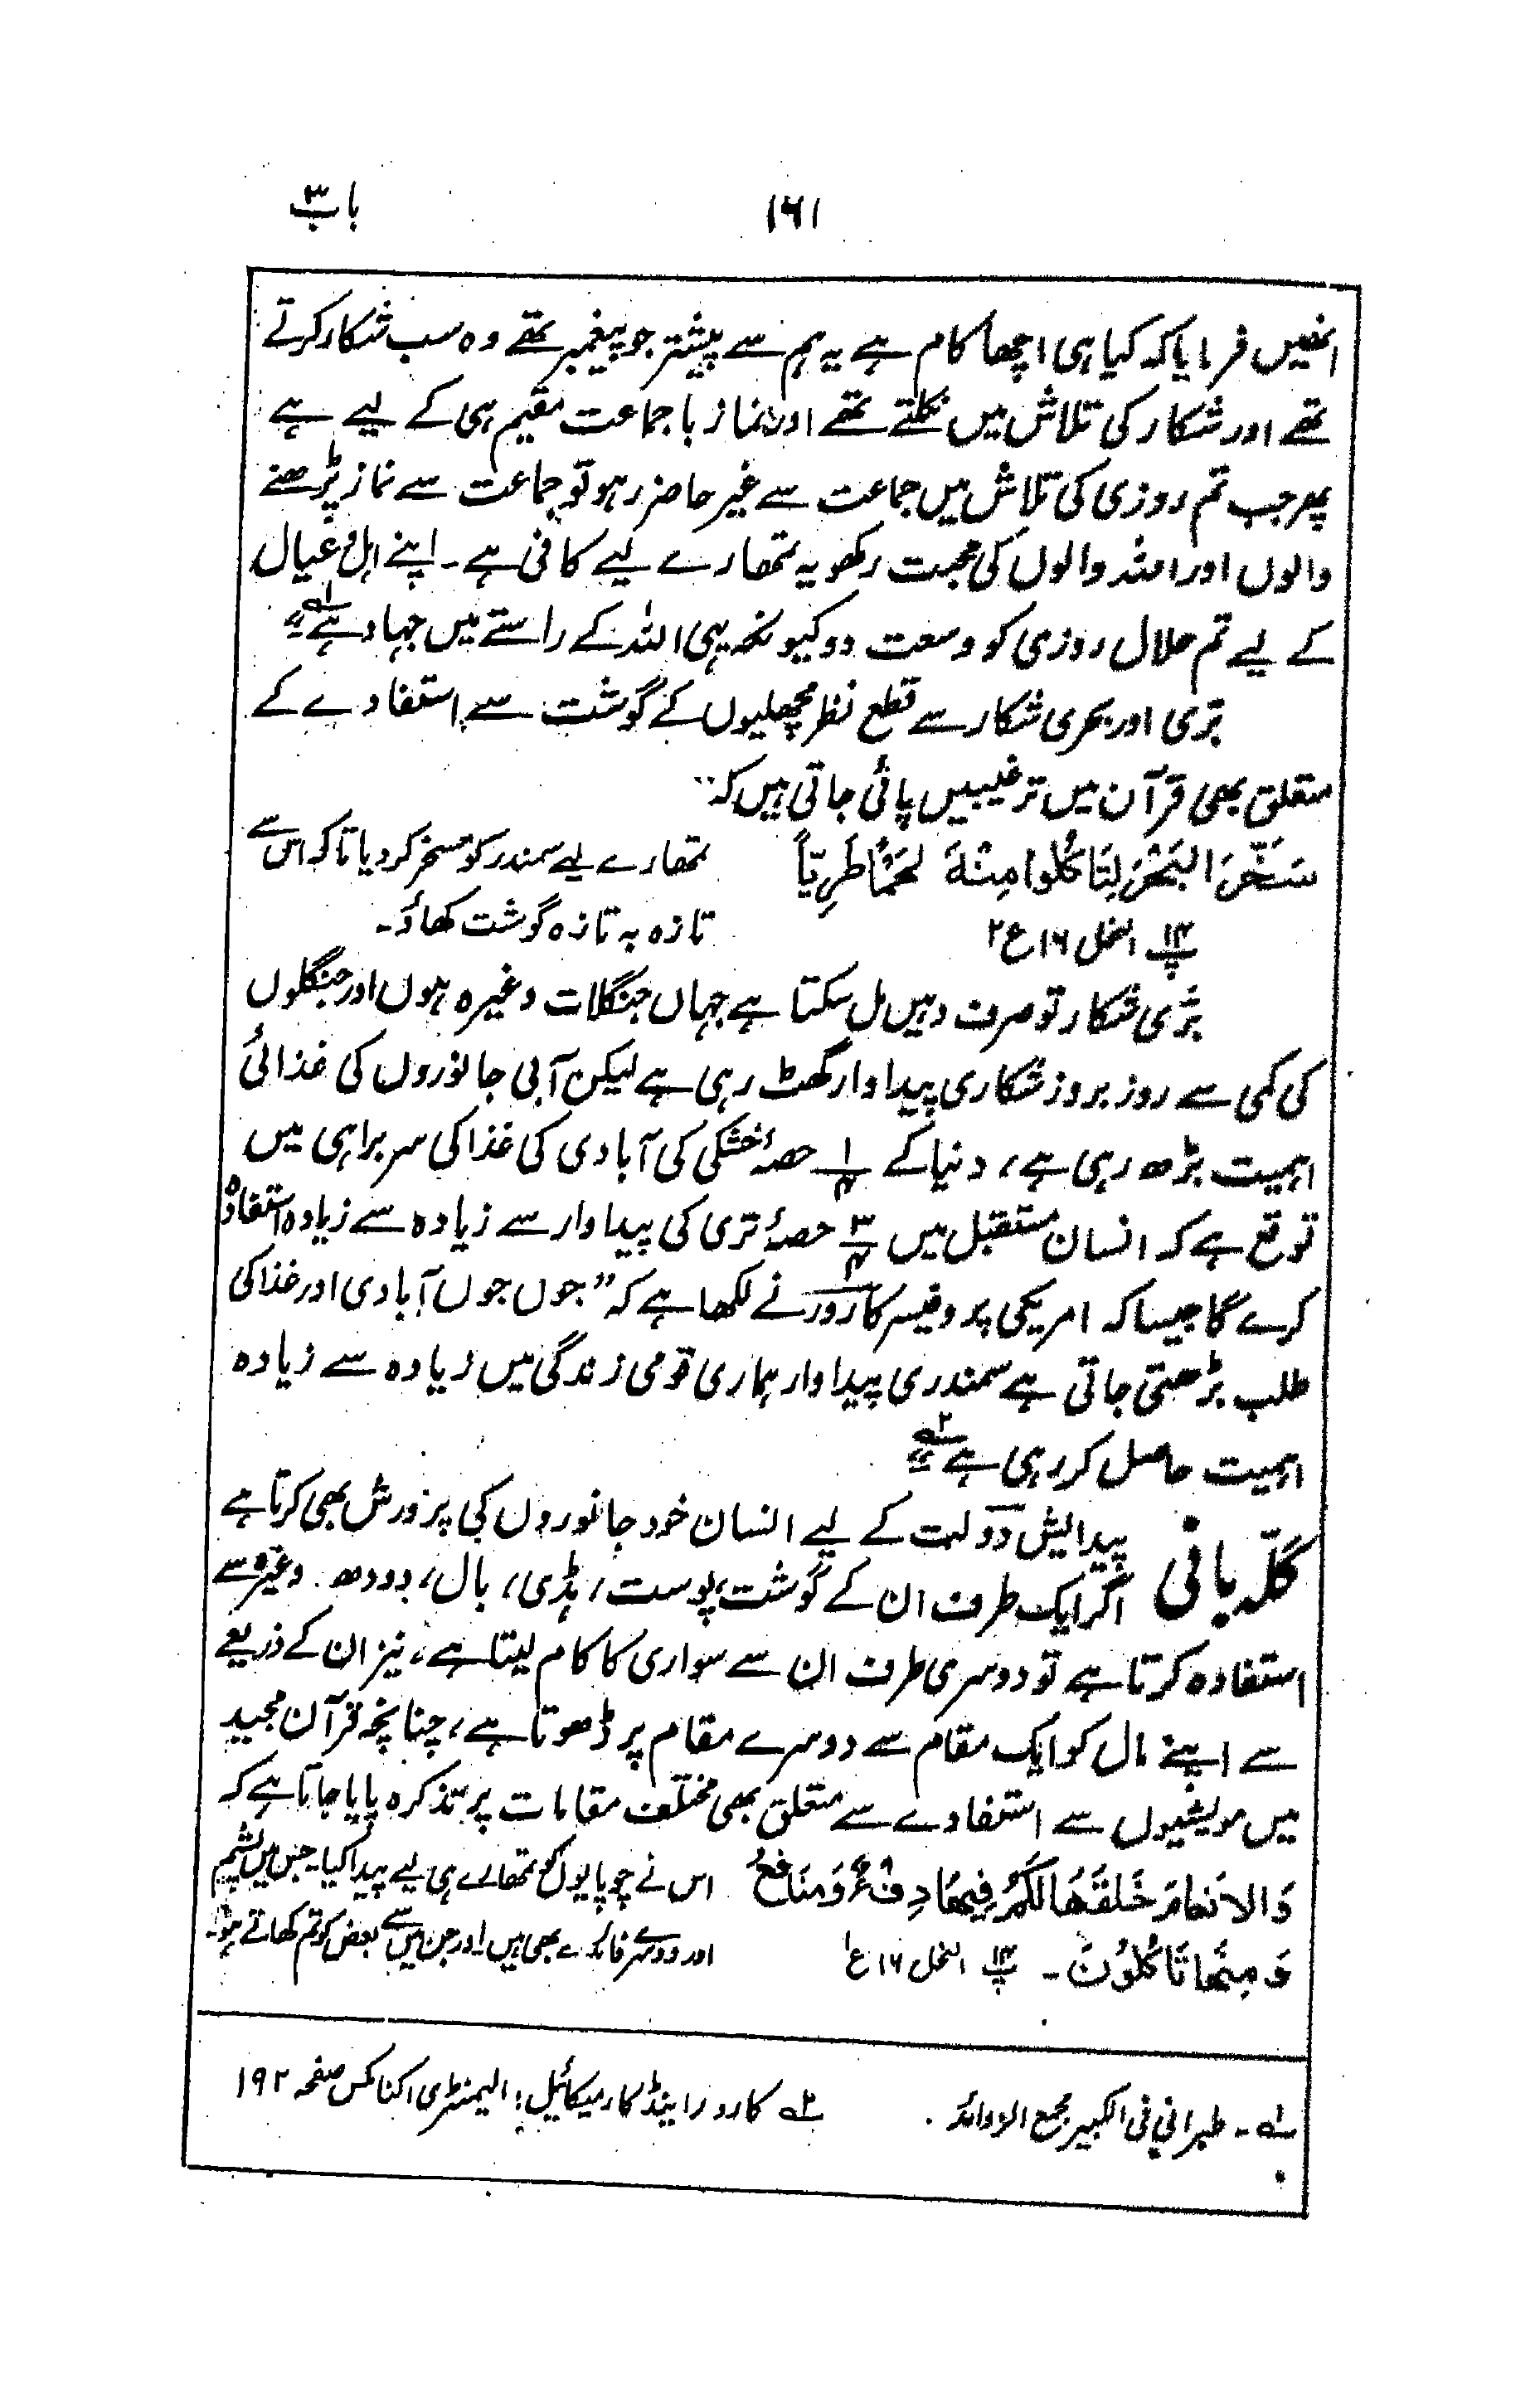 باب ۳
۱۶۱
انھیں فرمایا کہ کیا ہی اچھا کام ہے یہ ہم سے پیشتر جو پیغمبر تھے وہ سب شکار کرتے
تھے اور شکار کی تلاش میں نکلتے تھے اور نماز باجماعت مقیم ہی کے لیے ہے
پھر جب تم روزی کی تلاش میں جماعت سے غیر حاضر رہو تو جماعت سے نماز پڑھنے
والوں اور اللہ والوں کی محبت رکھو یہ تمھارے لیے کافی ہے۔ اپنے اہل و عیال
کے لیے تم حلال روزی کو وسعت دو کیونکہ یہی اللہ کے راستے میں جہاد ہے ۱؎"
بَرّی اور بحری شکار سے قطع نظر مچھلیوں کے گوشت سے استفادے کے
متعلق بھی قرآن میں ترغیبیں پائی جاتی ہیں کہ"
سَخَّرَ البَحْرَ لِتَاکُلُوا مِنْہُ لَحْمًا طَرِیّاً
تمھارے لیے سمندر کو مسخر کر دیا تاکہ اس سے
پ ۱۴ النحل ۱۶ ع ۲
تازہ بہ تازہ گوشت کھاؤ۔
بَرّی شکار تو صرف وہیں مل سکتا ہے جہاں جنگلات وغیرہ ہوں اور جنگلوں
کی کمی سے روز بروز شکاری پیداوار گھٹ رہی ہے لیکن آبی جانوروں کی غذائی
اہمیت بڑھ رہی ہے، دنیا کے ۱/۴ حصۂ خشکی کی آبادی کی غذا کی سربراہی میں
توقع ہے کہ انسان مستقبل میں ۳/۴ حصۂ تری کی پیداوار سے زیادہ سے زیادہ استفادہ
کرے گا جیسا کہ امریکی پروفیسر کارور نے لکھا ہے کہ "جوں جوں آبادی اور غذا کی
طلب بڑھتی جاتی ہے سمندری پیداوار ہماری قومی زندگی میں زیادہ سے زیادہ
اہمیت حاصل کر رہی ہے ۲؎"
گلّہ بانی پیدایش دولت کے لیے انسان خود جانوروں کی پرورش بھی کرتا ہے
اگر ایک طرف ان کے گوشت، پوست، ہڈی، بال، دودھ وغیرہ سے
استفادہ کرتا ہے تو دوسری طرف ان سے سواری کا کام لیتا ہے، نیز ان کے ذریعے
سے اپنے مال کو ایک مقام سے دوسرے مقام پر ڈھوتا ہے، چنانچہ قرآن مجید
میں مویشیوں سے استفادے سے متعلق بھی مختلف مقامات پر تذکرہ پایا جاتا ہے کہ
وَالاَنعَامَ خَلَقَھَا لَکُمْ فِیھَا دِفْءٌ وَّمَنَافِعُ
اس نے چوپایوں کو تمھارے ہی لیے پیدا کیا۔ جن میں پشم
وَمِنْھَا تَاکُلُوْنَ۔ پ ۱۴ النحل ۱۶ ع ۱
اور دوسرے فائدے بھی ہیں اور جن میں سے بعض کو تم کھاتے ہو۔
۱؎۔ طبرانی فی الکبیر مجمع الزوائد۔
۲؎ کارور اینڈ کارمیکائیل: الیمنٹری اکنامکس صفحہ ۱۹۲